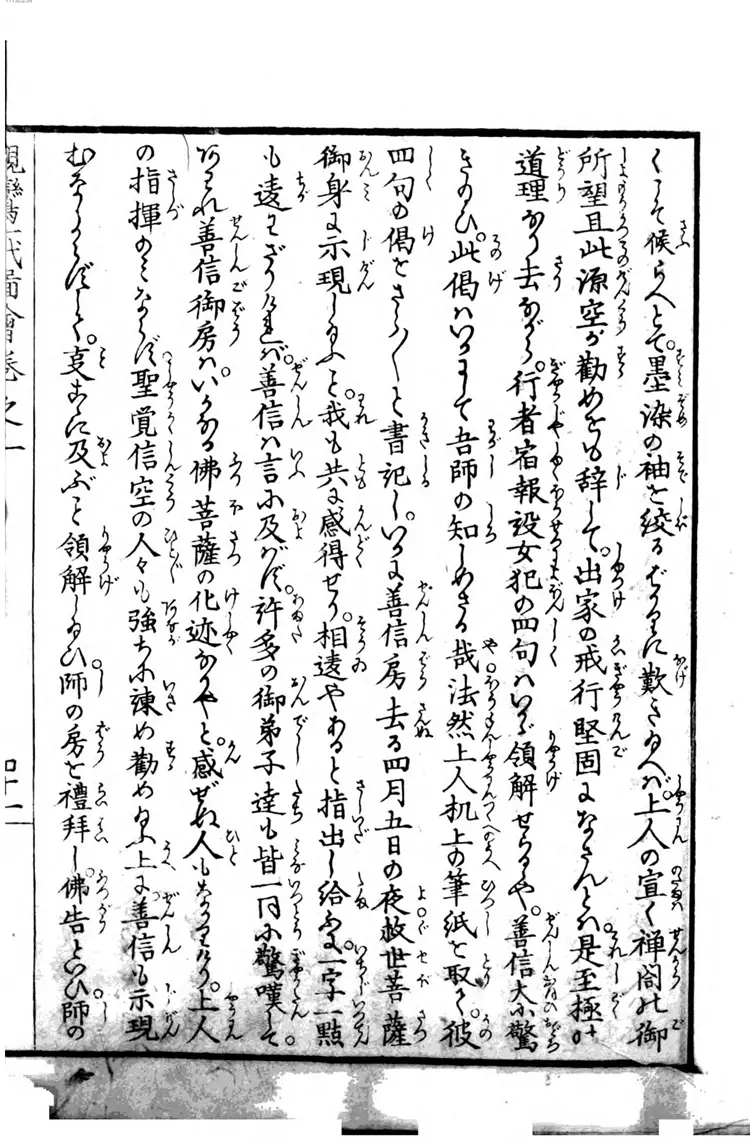 くこそ候らへとて。墨染の袖を絞るばかりに歎き給へば。上人の宣く禅閤の御
所望且此源空が勧めをも辞して。出家の戒行堅固になさんとは是至極の
道理なり去ながら。行者宿報設女犯の四句はいかゞ領解せらるゝや。善信大に驚
き給ひ。此偈はいかにして吾師の知しめさるゝ哉法然上人机上の筆紙を取て彼
四句の偈をさら〳〵と書記し。いかに善信房去る四月五日の夜救世菩薩
御身に示現し給ふと。我も共に感得せり。相違やあると指出し給ふに。一字一點
も違はざりければ。善信は言に及ばず。許多の御弟子達も皆一同に驚嘆して。
あはれ善信御房は。いかなる佛菩薩の化迹なるやと。感ぜぬ人もなかりけり。上人
の指揮のみならず聖覚信空の人々も強ちに諫め勧め給ふ上に。善信も示現
むなしからずして。爰に及ぶと領解し給ひ師の房を禮拜し。佛告といひ師の
親鸞一代圖會巻之一
四十一